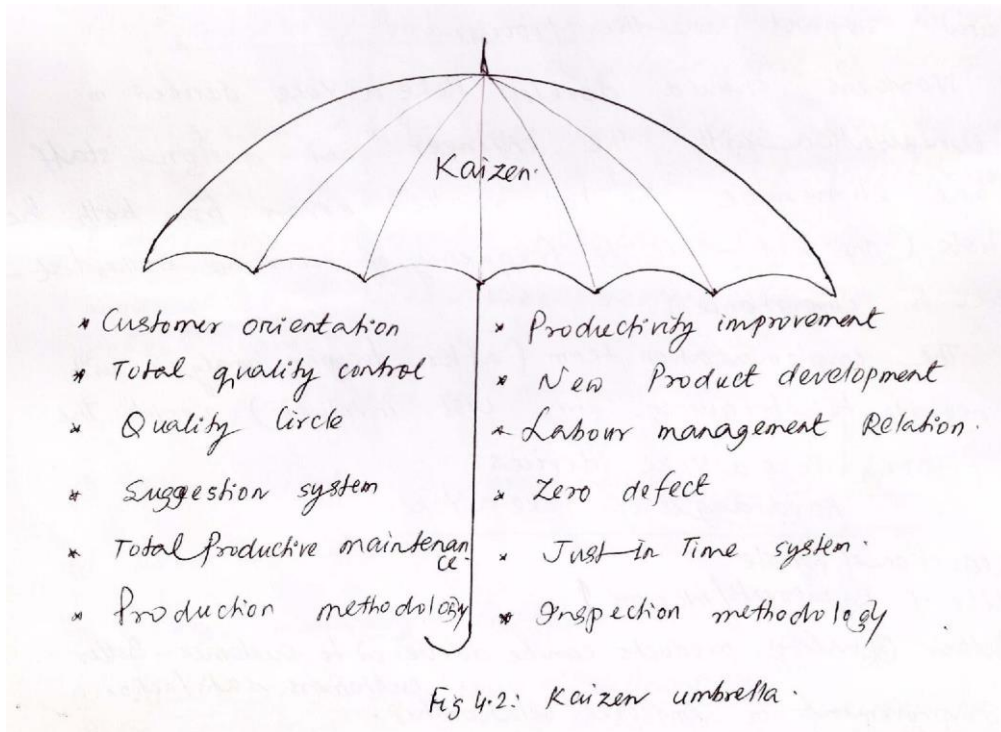 Kaizen.
* Customer orientation
* Total quality control
* Quality Circle
* Suggestion system
* Total Productive maintenan
ce.
* Production methodology
* Productivity improvement
* New Product development
* Labour management Relation.
* Zero defect
* Just-In Time system.
* Inspection methodology
Fig 4.2: Kaizen umbrella.